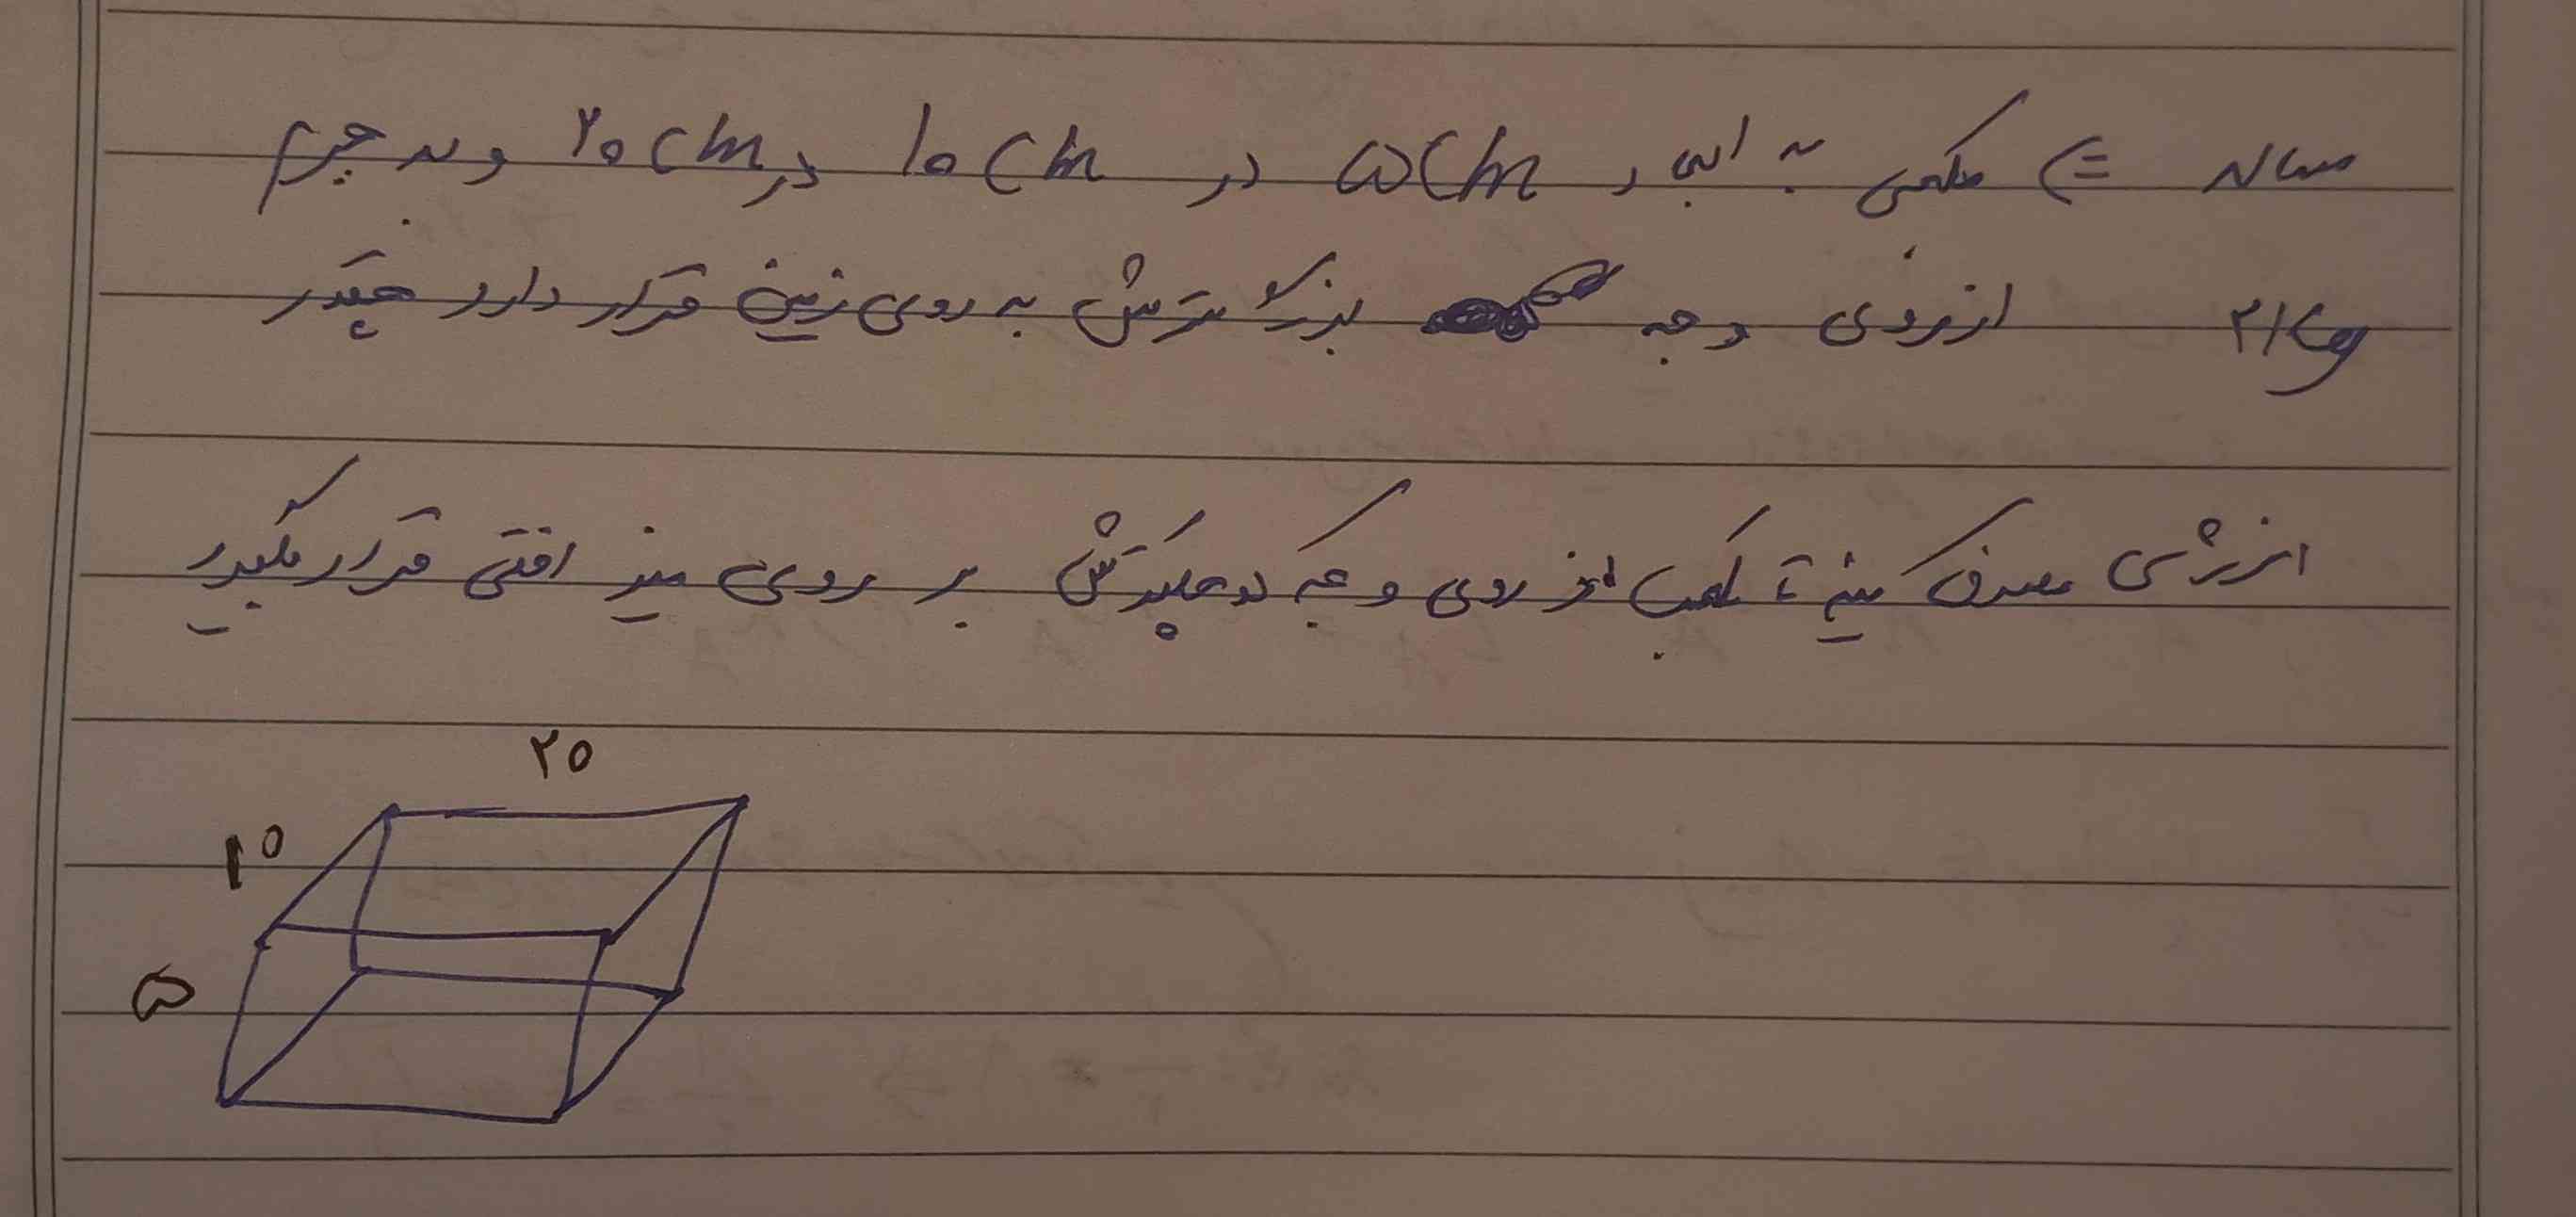 مساله = مکعبی به ابعاد ۵cm در ۱۰cm در ۲۰cm و به جرم
۲kg از روی وجه بزرگترش به روی زمین قرار دارد چقدر
انرژی مصرف کنیم تا مکعب از روی وجه کوچکترش بر روی میز افقی قرار بگیرد
۲۰
۱۰
۵